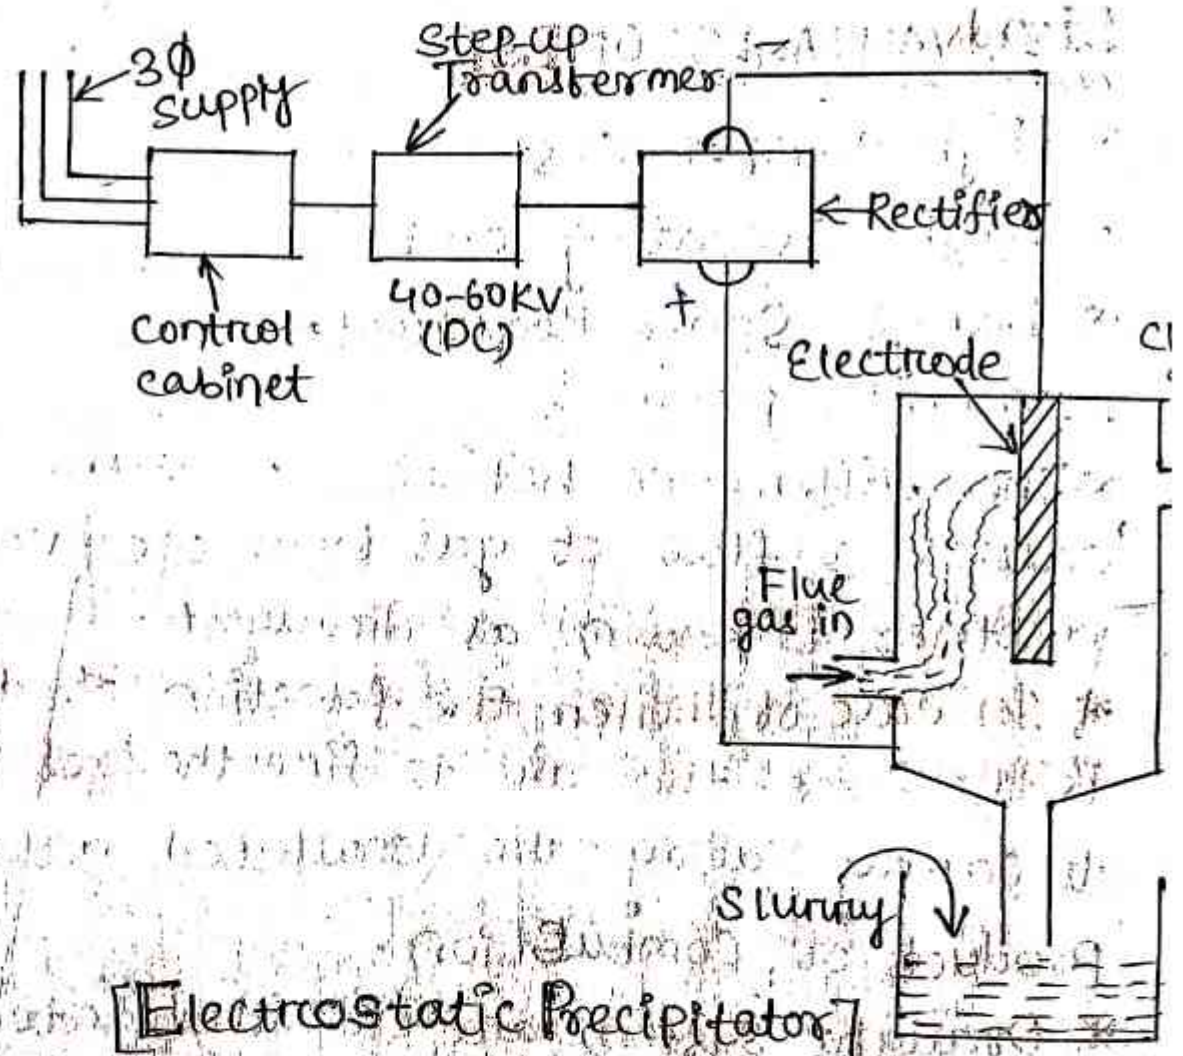 3Φ
Supply
Step-up
Transformer
Rectifier
Control
cabinet
40-60KV
(DC)
+
Electrode
Cl
Flue
gas in
Slurry
[Electrostatic Precipitator]